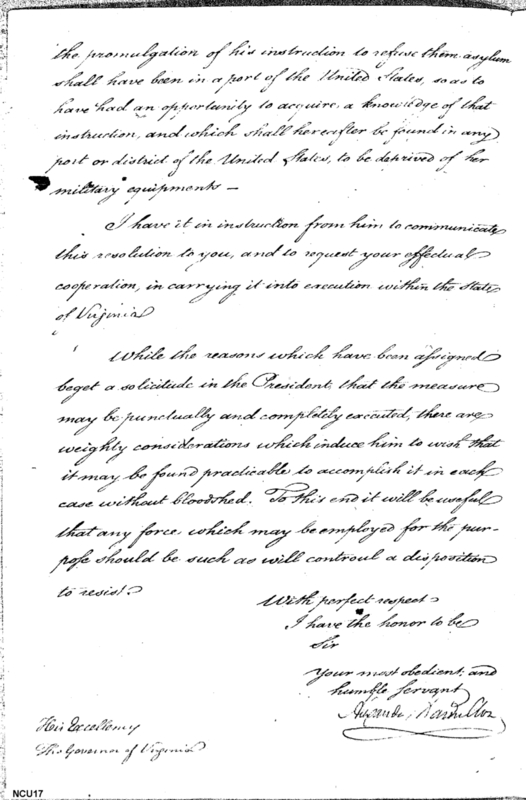 the promulgation of his instruction to refuse them asylum
shall have been in a port of the United States, so as to
have had an opportunity to acquire a knowledge of that
instruction, and which shall hereafter be found in any
port or district of the United States, to be deprived of her
military equipments —
I have it in instruction from him to communicate
this resolution to you, and to request your effectual
cooperation, in carrying it into execution within the State
of Virginia
While the reasons which have been assigned
beget a solicitude in the President, that the measure
may be punctually and completely executed, there are
weighty considerations which induce him to wish that
it may be found practicable to accomplish it in each
case without bloodshed. To this end it will be useful
that any force which may be employed for the pur-
pose should be such as will controul a disposition
to resist.
With perfect respect
I have the honor to be
Sir
Your most obedient and
humble servant
Alexander Hamilton
His Excellency
The Governor of Virginia
NCU17